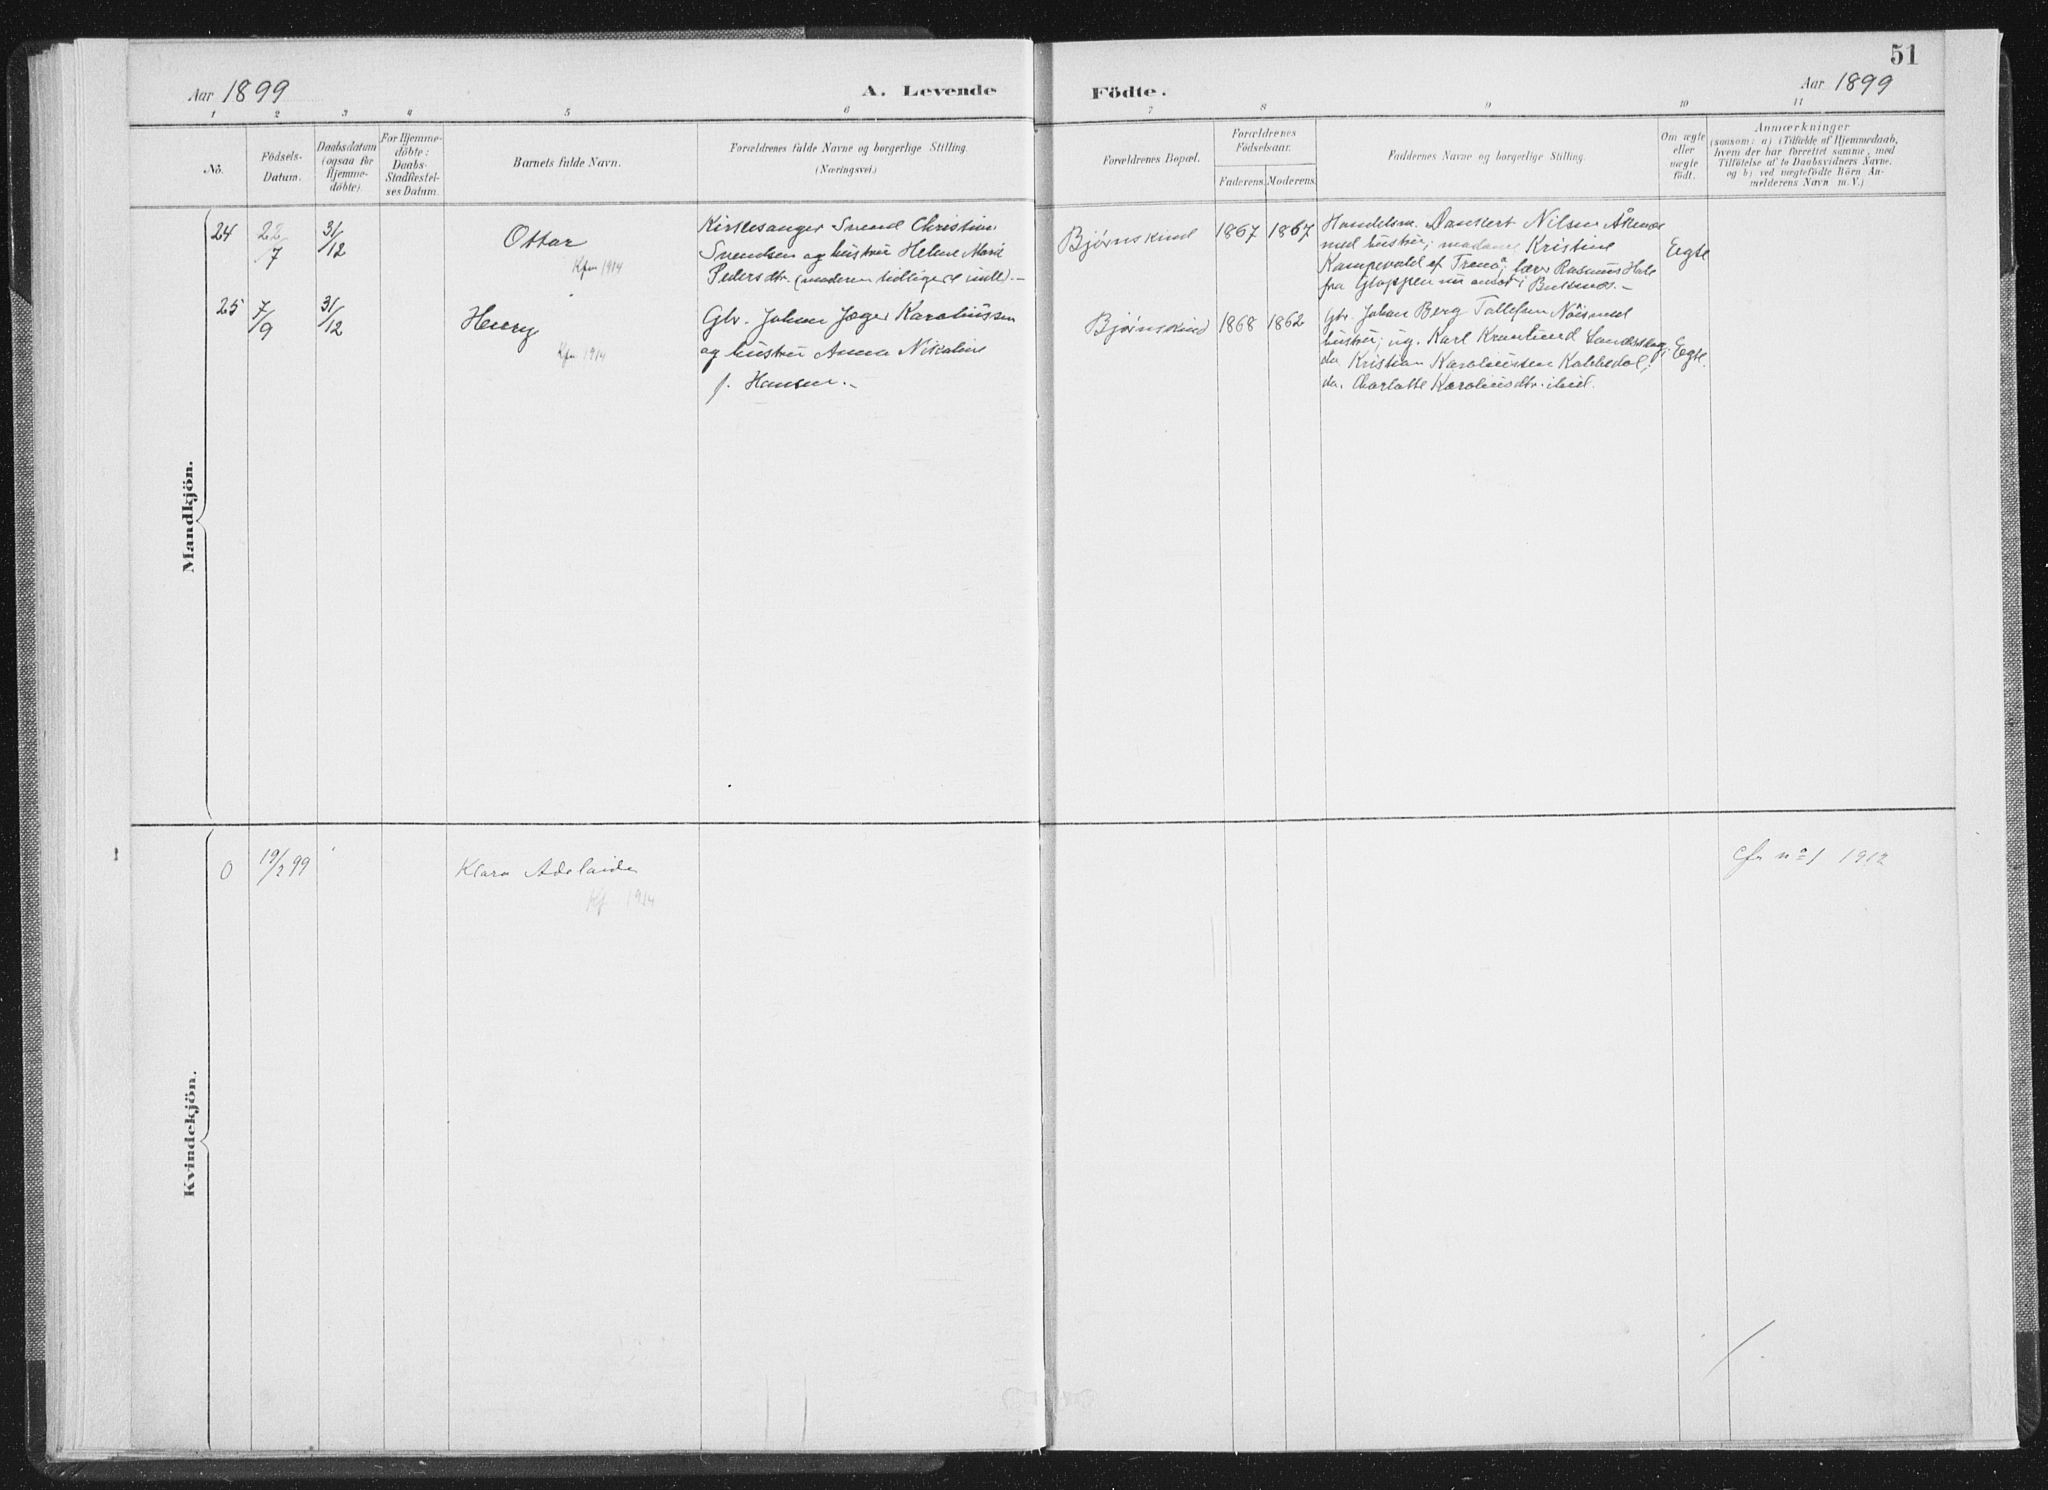 51
Aar 1899
A. Levende Födte.
Aar 1899
1 2 3 4 5 6 7 8 9 10 11
No.
Födsels-
Datum.
Daabsdatum
(ogsaa for
Hjemme-
döbte).
For Hjemme-
döbte:
Daabs-
Stadfæstel-
ses Datum.
Barnets fulde Navn.
Forældrenes fulde Navne og borgerlige Stilling.
(Næringsvei.)
Forældrenes Bopæl.
Forældrenes
Födselsaar.
Faderens. Moderens.
Faddernes Navne og borgerlige Stilling.
Om ægte
eller
uægte
födt.
Anmærkninger
(saasom: a) i Tilfælde af Hjemmedaab,
hvem der har forrettet samme, med
Tilföielse af to Daabsvidners Navne.
og b) ved uægtefödte Börn An-
melderens Navn m. V.)
Mandkjön.
24
22/7
31/12
Ottar
Kfm 1914
Kirkesanger Svend Christian
Svendsen og hustru Helene Marie
Pedersdtr. (moderen tidligere
Bjørnskind
1867 1867
Handelsm. Dankert Nilsen
med hustru; madame Kristine
af Trenå; lærer Rasmus
fra Gloppen nu ansat i
Egte
25
7/9
31/12
Henry
Kfm 1914
Gbr. Johan Jæger Karoliussen
og hustru Anna Nikoline
f. Hansen.
Bjørnskind
1868 1862
Gbr. Johan Berg Tollefsen med
hustru; ug. Karl
do Kristian Karoliussen
do. Charlotte Karoliusdtr. ibid.
Egte
Kvindekjön.
0
19/2 99
Klara Adelaide
Kf 1914
cfr no 1 1912